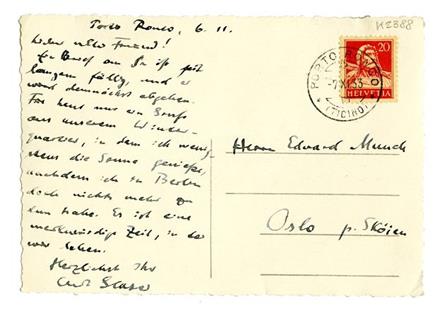 K2388
Porto Ronco, 6. 11.
Lieber alter Freund!
Ein Brief an Sie ist seit
langem fällig, und er
wird demnächst abgehen.
Für heut nur ein Gruss
aus unserem Winter-
quartier, in dem ich wenig-
stens die Sonne geniesse,
nachdem ich in Berlin
doch nichts mehr zu
tun habe. Es ist eine
merkwürdige Zeit, in der
wir leben.
Herzlichst Ihr
Curt Glaser
20
HELVETIA
PORTO RONCO
-7.XI.33
(TICINO)
Herrn Edvard Munch
Oslo p. Sköien